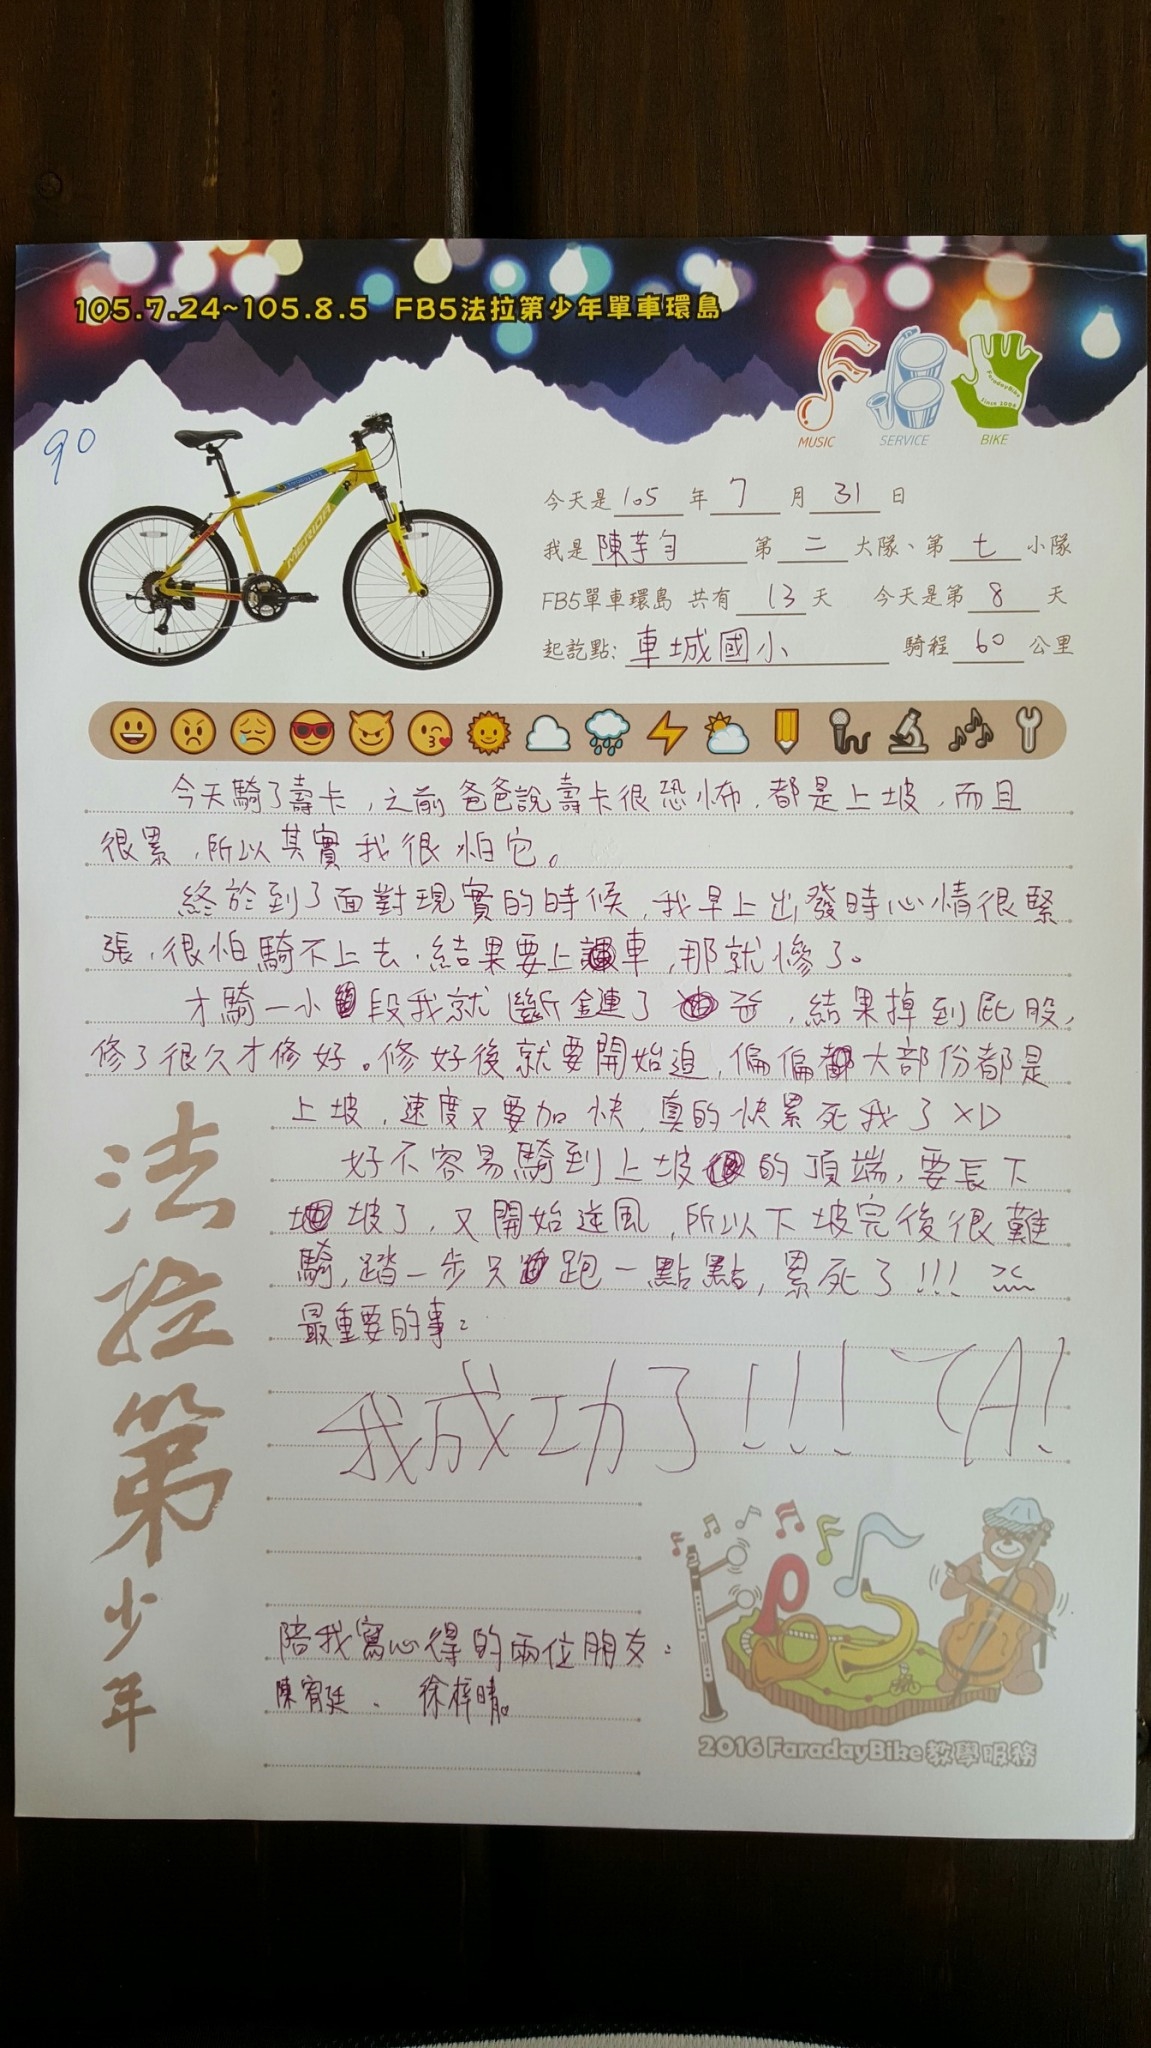 105.7.24~105.8.5 FB5法拉第少年單車環島
MUSIC SERVICE BIKE
FaradayBike
Since 2004
90
MERIDA
今天是105年7月31日
我是陳芋勻 第二大隊、第七小隊
FB5單車環島 共有13天 今天是第8天
起訖點:車城國小 騎程60公里
今天騎了壽卡,之前爸爸說壽卡很恐怖,都是上坡,而且
很累,所以其實我很怕它。
終於到了面對現實的時候,我早上出發時心情很緊
張,很怕騎不上去,結果要上車,那就慘了。
才騎一小段我就斷鏈了,結果掉到屁股,
修了很久才修好。修好後就要開始追,偏偏大部份都是
上坡,速度又要加快,真的快累死我了XD
好不容易騎到上坡的頂端,要長下
坡了,又開始逆風,所以下坡完後很難
騎,踏一步只跑一點點,累死了!!!
最重要的事:
我成功了!!! YA!
陪我寫心得的兩位朋友:
陳宥廷、徐梓晴。
法拉第少年
2016 FaradayBike教學服務